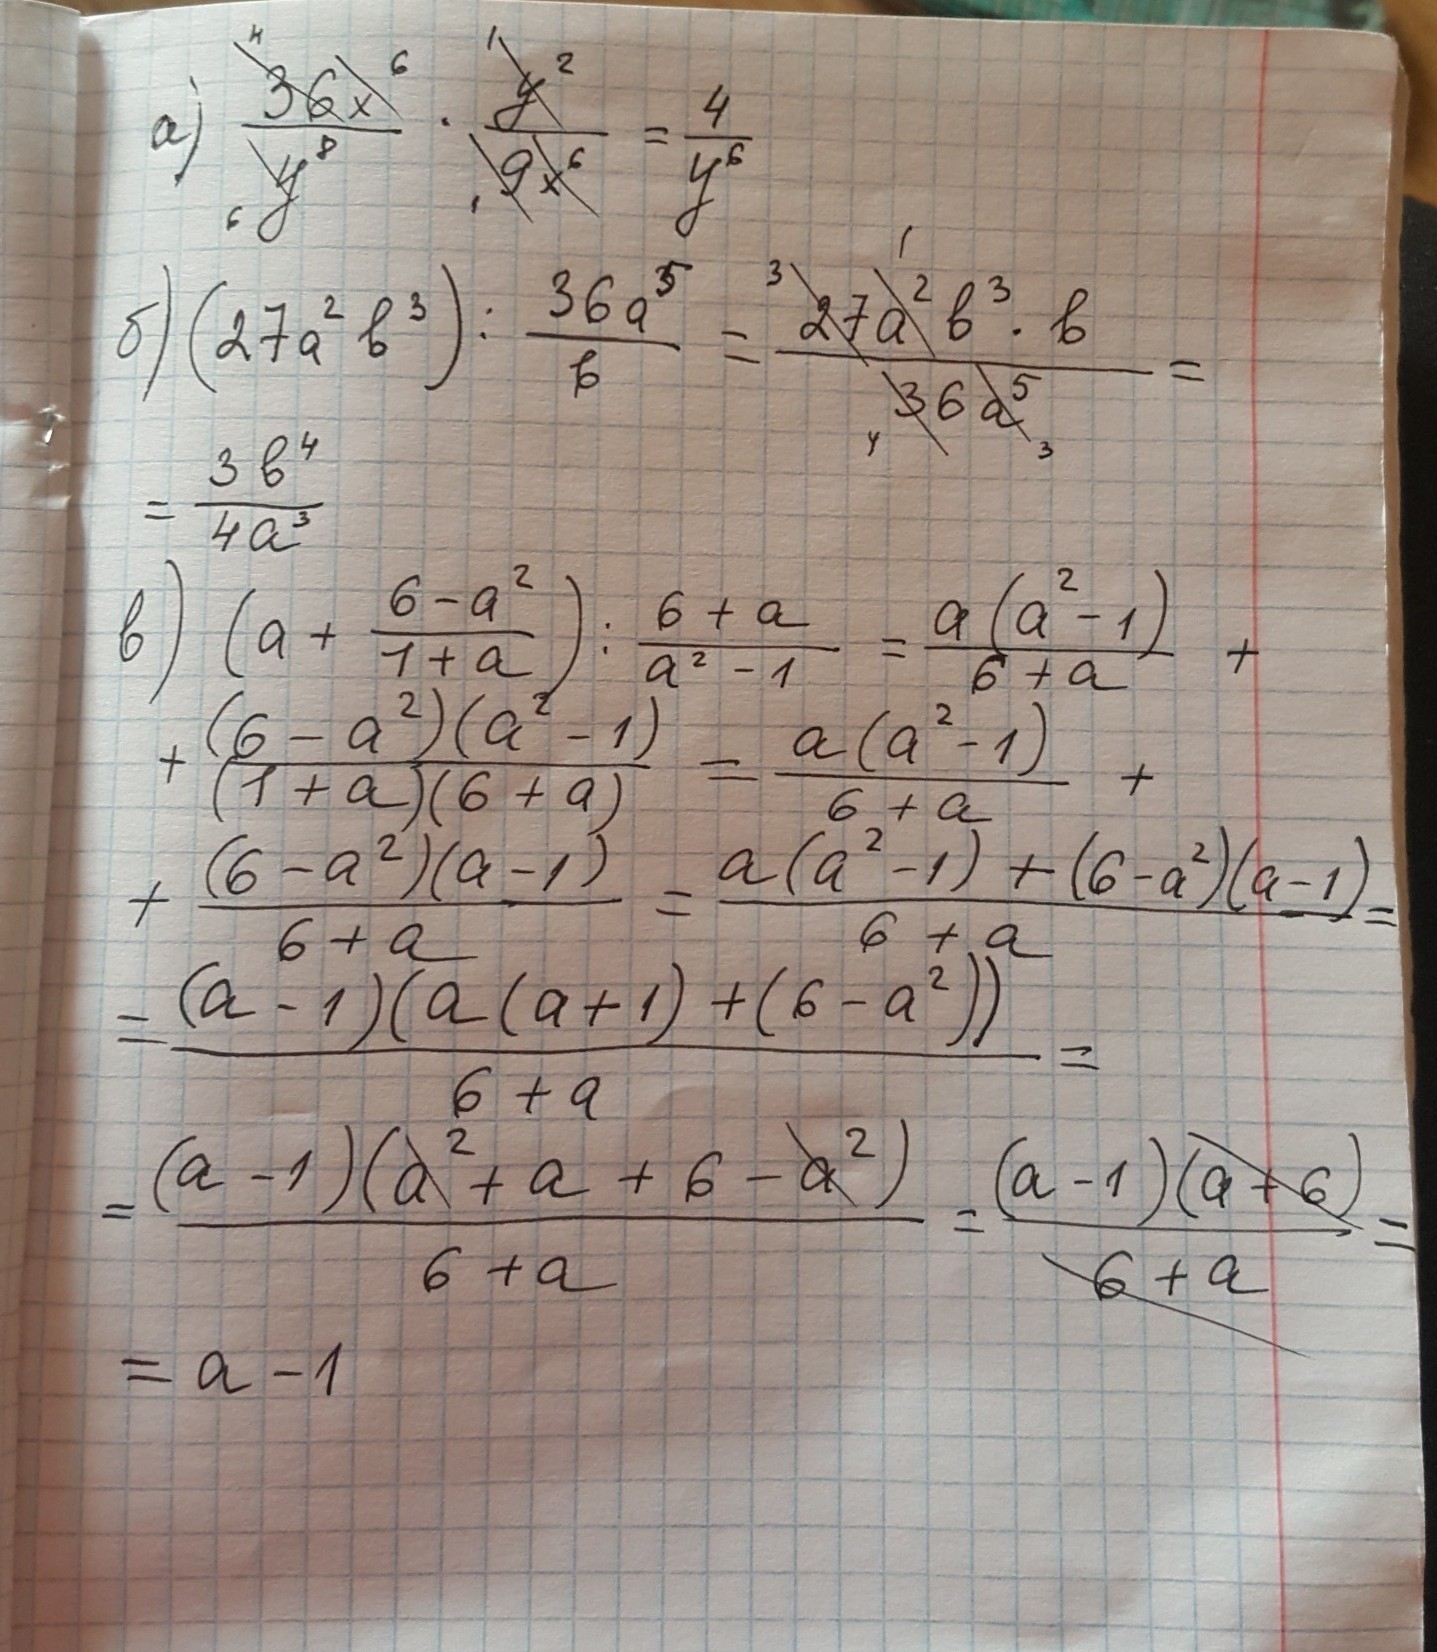 а) 36x⁶/y⁸ · y²/9x⁶ = 4/y⁶
4 1 6 1
б) (27a² b³) : 36a⁵/b = 27a² b³ · b/36a⁵ =
3 1 4 3
= 3b⁴/4a³
в) (a + 6-a²/1+a) : 6+a/a²-1 = a(a²-1)/6+a +
+ (6-a²)(a²-1)/(1+a)(6+a) = a(a²-1)/6+a +
+ (6-a²)(a-1)/6+a = a(a²-1)+(6-a²)(a-1)/6+a =
= (a-1)(a(a+1)+(6-a²))/6+a =
= (a-1)(a²+a+6-a²)/6+a = (a-1)(a+6)/6+a =
= a-1